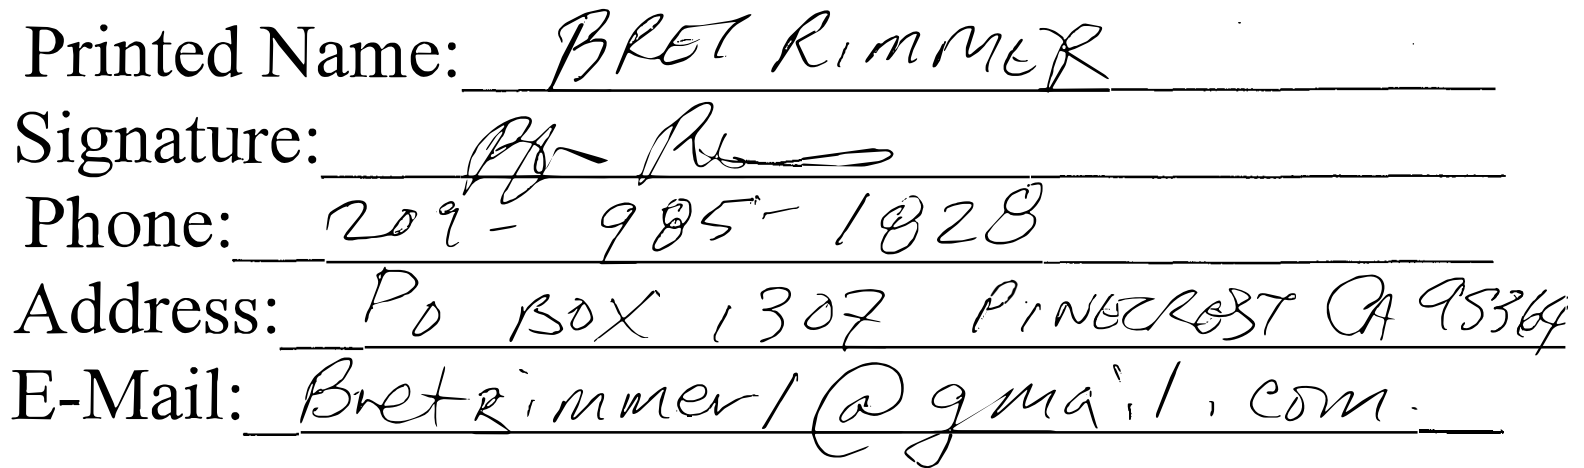 Printed Name: BRET RIMMER
Signature:
Phone: 209-985-1828
Address: PO BOX 1307 PINECREST CA 95364
E-Mail: Bretrimmer1@gmail.com